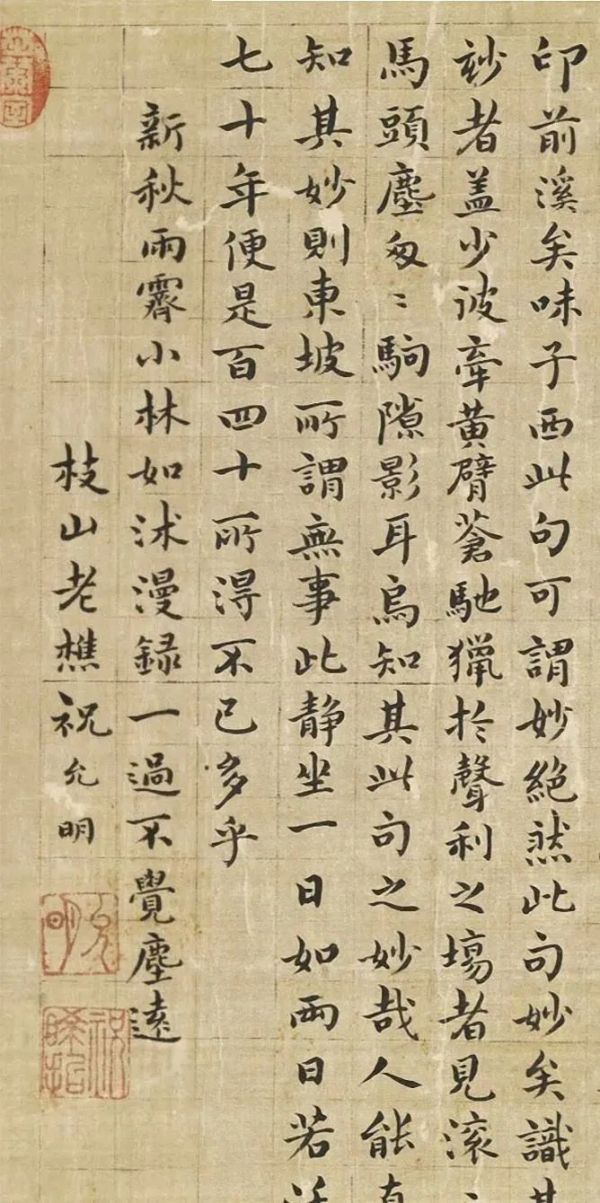 印前溪矣味子西此句可謂妙絕然此句妙矣識其
玅者盖少彼牽黃臂蒼馳獵於聲利之場者見滾〻
馬頭塵匆〻駒隙影耳烏知其此句之妙哉人能真
知其妙則東坡所謂無事此静坐一日如兩日若活
七十年便是百四十所得不已多乎
新秋雨霽小林如沐漫録一過不覺塵遠
枝山老樵祝允明
允明
祝晞哲